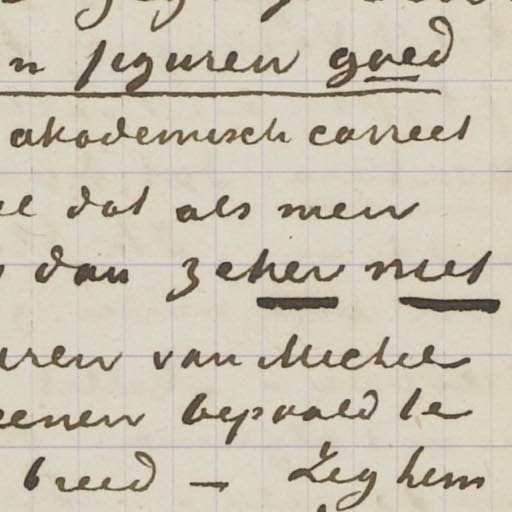 n figuren goed
akademisch correct
dat als men
dan zeker niet
uren van Michel
eenen bepaald te
breed — Zeg hem